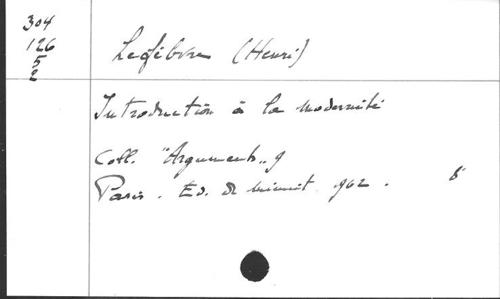 304
126
5
2
Lefébvre (Henri)
Introduction à la modernité
Coll. "Arguments" 9
Paris. Ed. de minuit 962. 8°